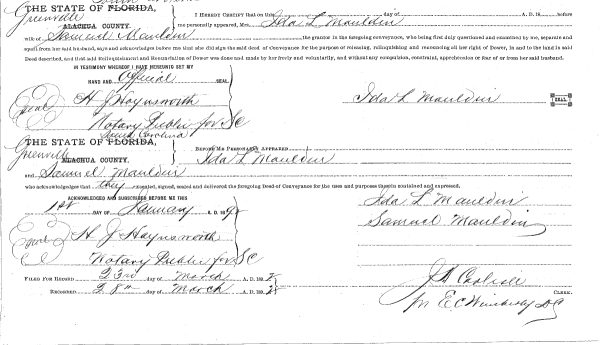 South Carolina
THE STATE OF FLORIDA,
Greenville
ALACHUA COUNTY.
I HEREBY CERTIFY that on this day of A. D. 18 before
me personally appeared, Mrs. Ida L Mauldin
wife of Samuel Mauldin the grantor in the foregoing conveyance, who being first duly questioned and examined by me, separate and
apart from her said husband, says and acknowledges before me that she did sign the said deed of Conveyance for the purpose of releasing, relinquishing and renouncing all her right of Dower, in and to the land in said
Deed described, and that said Relinquishment and Renunciation of Dower was done and made by her freely and voluntarily, and without any compulsion, constraint, apprehension or fear of or from her said husband.
IN TESTIMONY WHEREOF I HAVE HEREUNTO SET MY
HAND AND Official SEAL
Seal H J Haynsworth Ida L Mauldin SEAL
Notary Public for SC
South Carolina
THE STATE OF FLORIDA,
Greenville
ALACHUA COUNTY.
BEFORE ME PERSONALLY APPEARED
Ida L Mauldin
and Samuel Mauldin
who acknowledges that they executed, signed, sealed and delivered the foregoing Deed of Conveyance for the uses and purposes therein contained and expressed.
ACKNOWLEDGED AND SUBSCRIBED BEFORE ME THIS
1st DAY OF January A. D. 18
Ida L Mauldin
Samuel Mauldin
Seal H J Haynsworth
Notary Public for SC
FILED FOR RECORD 23rd day of March A. D. 189
RECORDED 28th day of March A. D. 189
CLERK.
per E C Wimberly DC